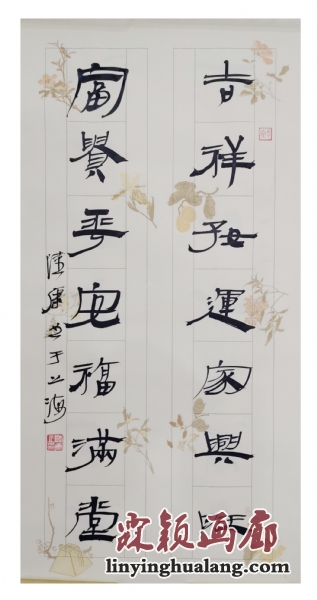 吉祥好運家興旺
富貴平安福滿堂
陸康书于上海
霖颖画廊
linyinghualang.com